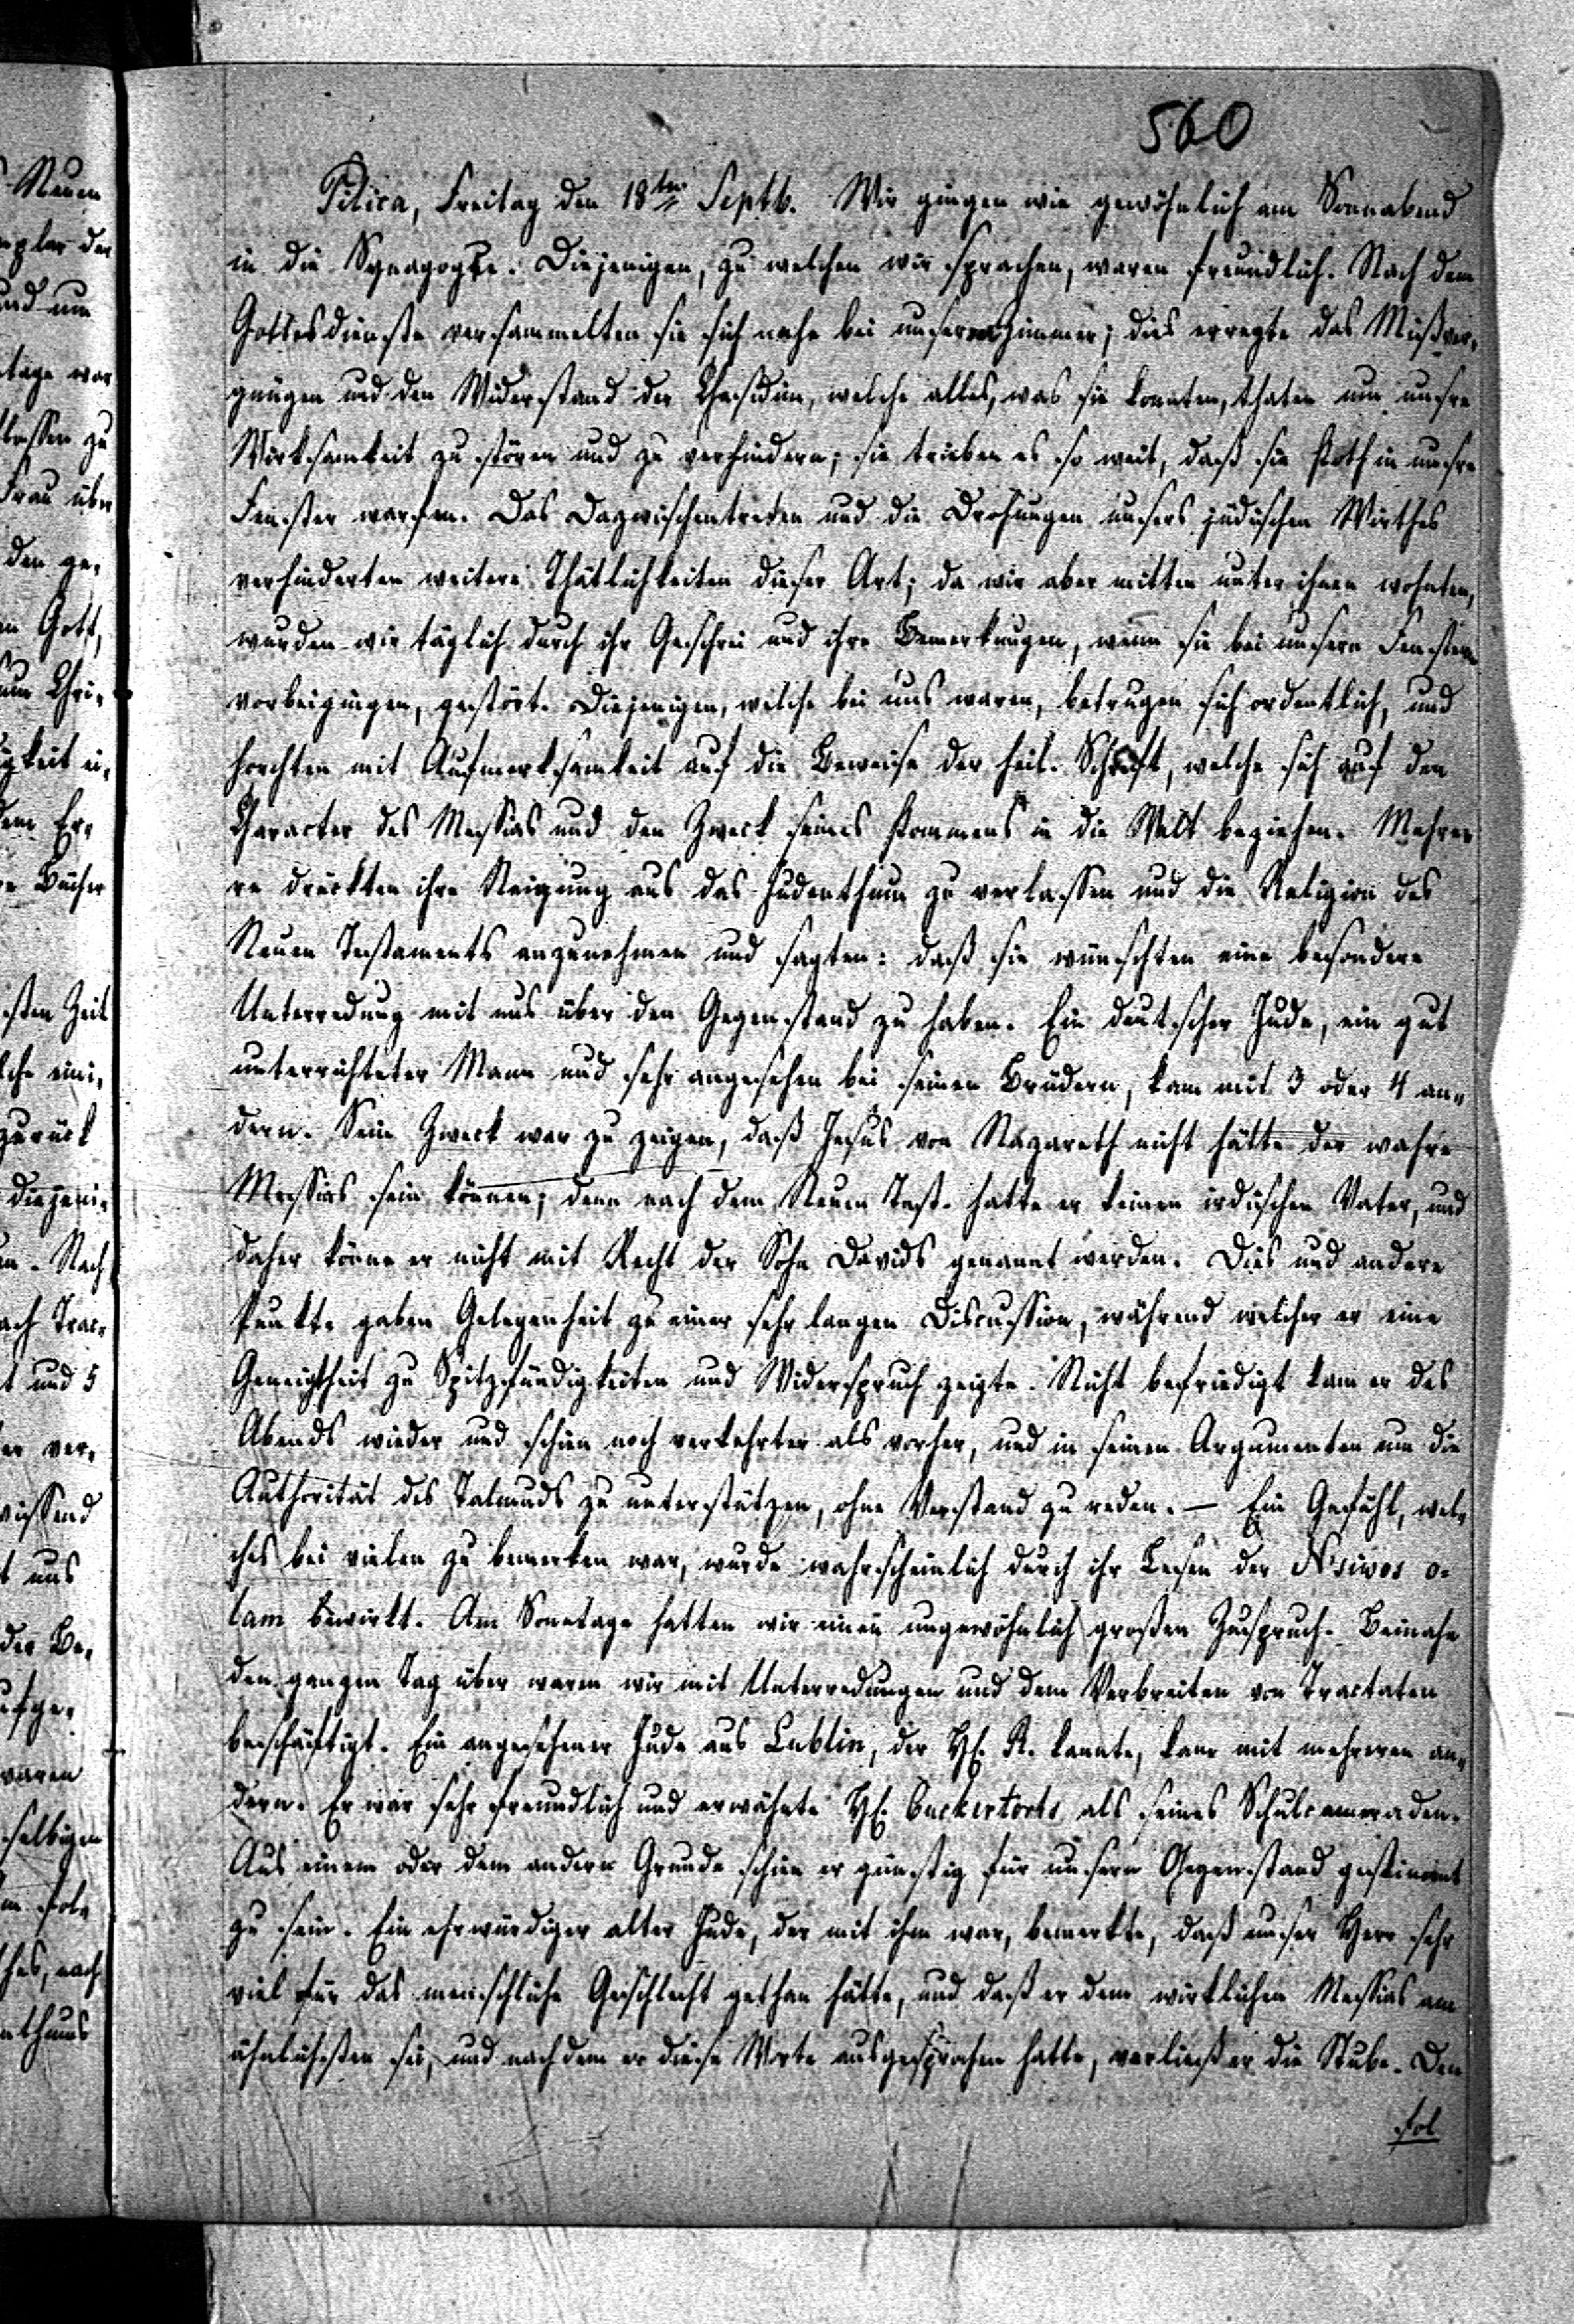 560
Pilica, Freitag den 18ten Septb. Wir gingen wie gewöhnlich am Sonnabend
in die Synagoge. Diejenigen, zu welchen wir sprachen, waren freundlich. Nach dem
Gottesdienste versammelten sie sich nahe bei unserm Zimmer; dies erregte das Mißver-
gnügen und den Widerstand der Chasidim, welche alles, was sie konnten, thaten um unsre
Wirksamkeit zu stören und zu verhindern; sie trieben es so weit, daß sie Koth in unsre
Fenster warfen. Das Dazwischentreten und die Drohungen unsers jüdischen Wirthes
verhinderten weitere Thätlichkeiten dieser Art; da wir aber mitten unter ihnen wohnten,
wurden wir täglich durch ihr Geschrei und ihre Bemerkungen, wenn sie bei unsern Fenstern
vorbeigingen, gestört. Diejenigen, welche bei uns waren, betrugen sich ordentlich, und
horchten mit Aufmerksamkeit auf die Beweise der heil. Schrift, welche sich auf den
Character des Messias und den Zweck seines Kommens in die Welt beziehen. Mehre-
re drückten ihre Neigung aus das Judenthum zu verlassen und die Religion des
Neuen Testaments anzunehmen und sagten: daß sie wünschten eine besondere
Unterredung mit uns über den Gegenstand zu haben. Ein deutscher Jude, ein gut
unterrichteter Mann und sehr angesehen bei seinen Brüdern, kam mit 3 oder 4 an-
dern. Sein Zweck war zu zeigen, daß Jesus von Nazareth nicht hätte der wahre
Messias sein können; denn nach dem Neuen Test. hatte er keinen irdischen Vater, und
daher könne er nicht mit Recht der Sohn Davids genannt werden. Dies und andere
Punkte gaben Gelegenheit zu einer sehr langen Discussion, während welcher er eine
Geneigtheit zu Spitzfündigkeiten und Widerspruch zeigte. Nicht befriedigt kam er des
Abends wieder und schien noch verkehrter als vorher, und in seinen Argumenten um die
Authorität des Talmuds zu unterstützen, ohne Verstand zu reden. — Ein Gefühl, wel-
ches bei vielen zu bemerken war, wurde wahrscheinlich durch ihr Lesen der Nsiwos o-
lam bewirkt. Am Sonntage hatten wir einen ungewöhnlich großen Zuspruch. Beinahe
den ganzen Tag über waren wir mit Unterredungen und dem Verbreiten von Tractaten
beschäftigt. Ein angesehener Jude aus Lublin, der H. R. kannte, kam mit mehreren an-
dern. Er war sehr freundlich und erwähnte H. Zuckertorts als seines Schulcameraden.
Aus einem oder dem andern Grunde schien er günstig für unsern Gegenstand gestimmt
zu sein. Ein ehrwürdiger alter Jude, der mit ihm war, bemerkte, daß unser Herr sehr
viel für das menschliche Geschlecht gethan hätte, und daß er dem wirklichen Messias am
ähnlichsten sei, und nachdem er diese Worte ausgesprochen hatte, verließ er die Stube. Den
fol